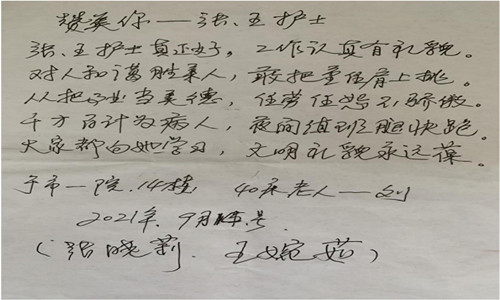 赞美你——张、王护士
张、王护士真正好，工作认真有礼貌。
对人和蔼胜亲人，敢把重任肩上挑。
从把敬业当美德，任劳任怨不骄傲。
千方百计为病人，夜间值班腿快跑。
大家都向她学习，文明礼貌永远葆。
于市一院.14楼 40床老人——刘
2021年.9月 号.
（张晓莉.王婉茹）